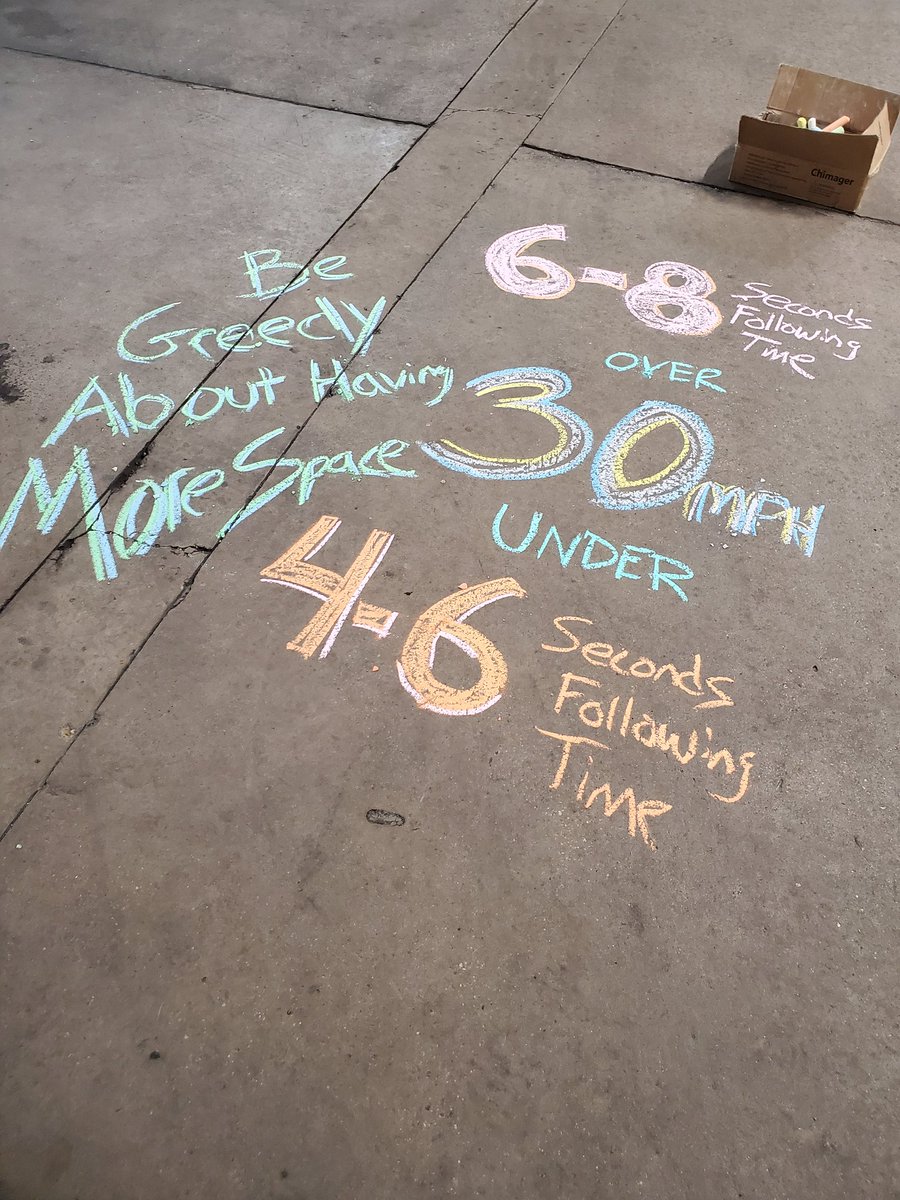 Be
Greedy
About Having
More Space
6-8
Seconds
Following
Time
OVER
30 MPH
UNDER
4-6
Seconds
Following
Time
Chimager